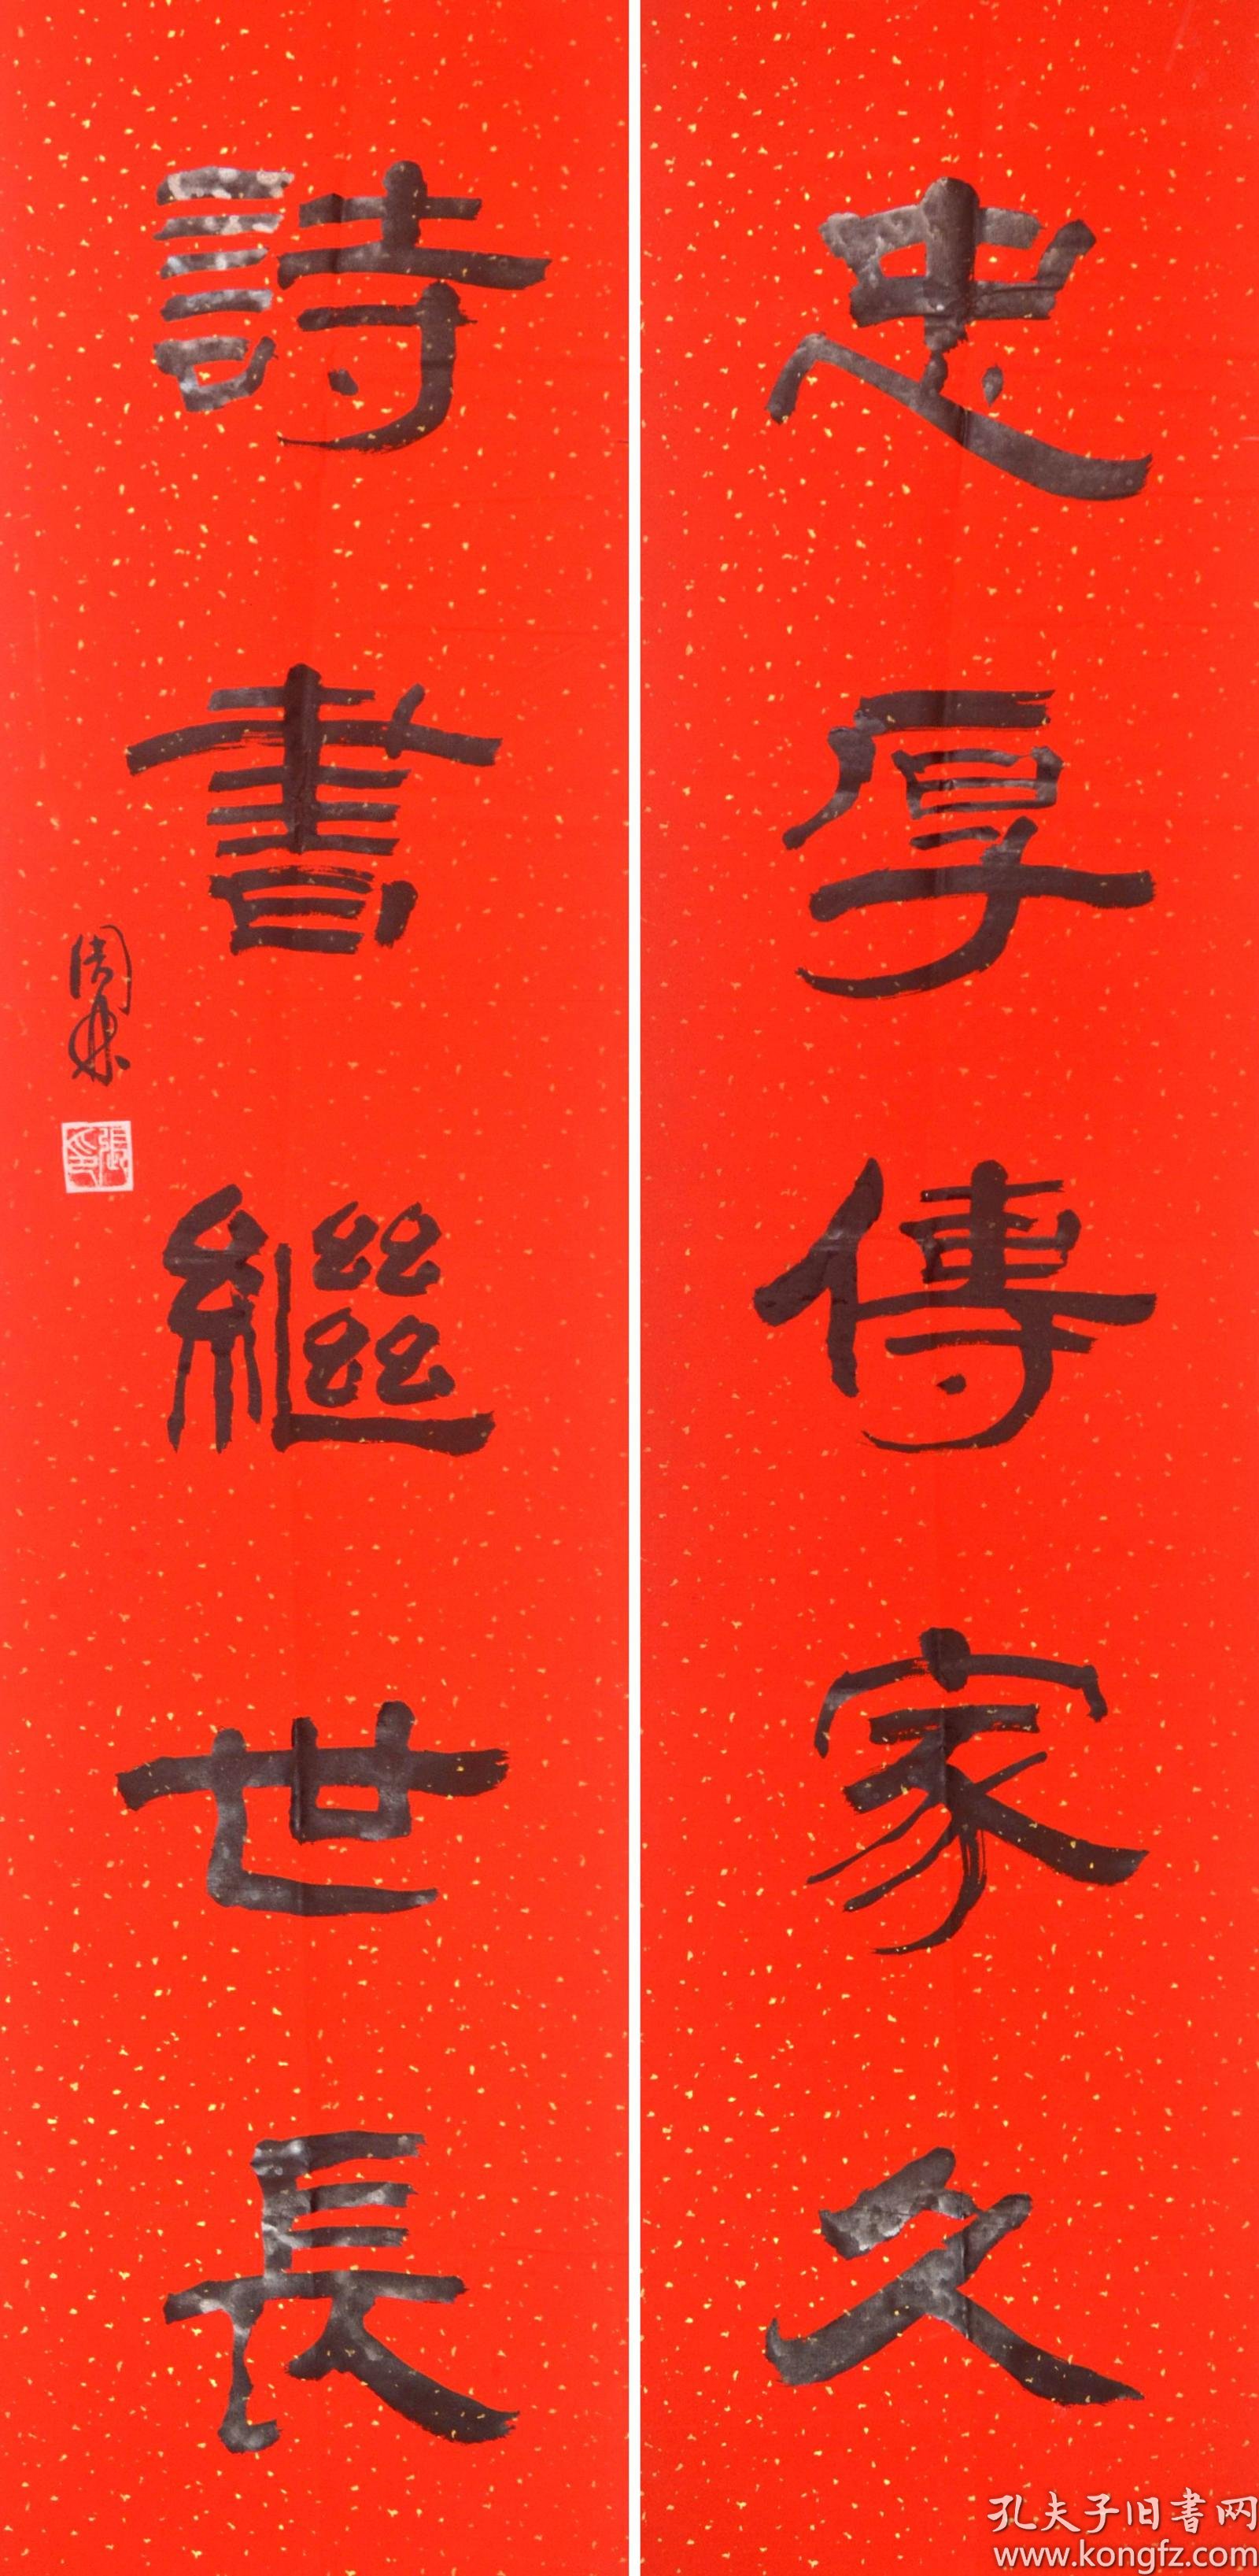 忠厚傳家久
詩書繼世長
孔夫子旧書网
www.kongfz.com